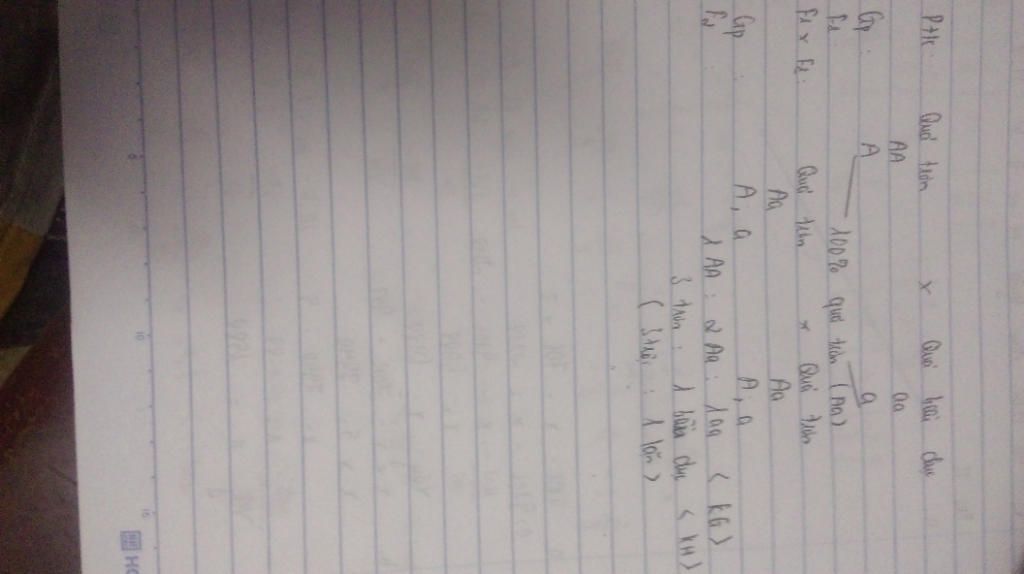 Pt/c: Quả tròn x Quả bầu dục
AA aa
Gp: A a
F1: 100% quả tròn (Aa)
F1 x F1: Quả tròn x Quả tròn
Aa Aa
Gp: A, a A, a
F2: 1 AA : 2 Aa : 1 aa (KG)
3 tròn : 1 bầu dục (KH)
( 3 trội : 1 lặn )
5
10
15